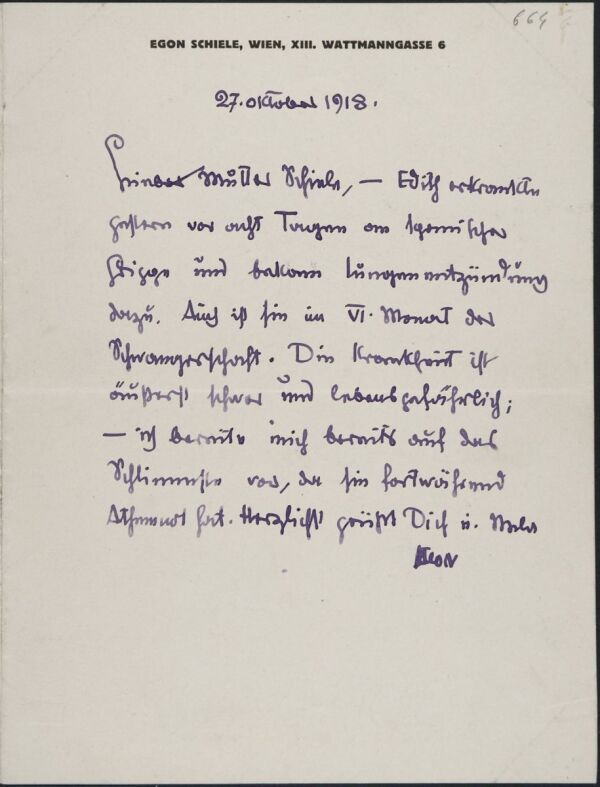 664
EGON SCHIELE, WIEN, XIII. WATTMANNGASSE 6
27. oktober 1918.
Liebe Mutter Schiele, — Edith erkrankte
gestern vor acht Tagen an spanischer
Grippe und bekam Lungenentzündung
dazu. Auch ist sie im VI. Monat der
Schwangerschaft. Die Krankheit ist
äußerst schwer und lebensgefährlich;
— ich bereite mich bereits auf das
Schlimmste vor, da sie fortwährend
Athemnot hat. Herzlichst grüßt Dich u.
Egon